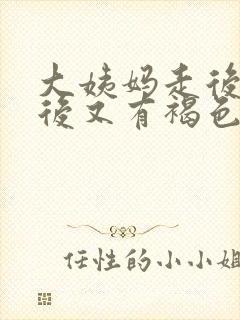 大姨妈走後
後又有褐色
任性的小小姐